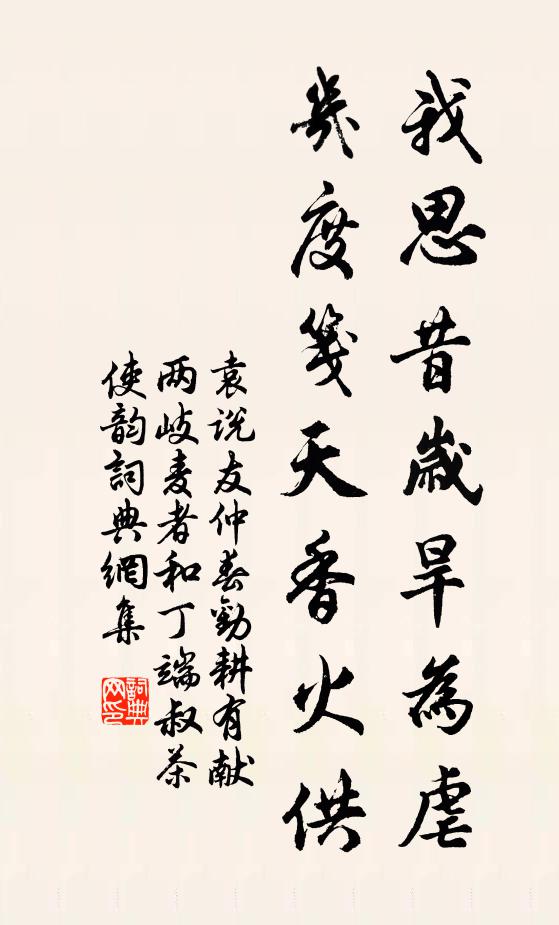 我思昔歲旱為虐
幾度箋天香火供
袁说友仲春勸耕有献
两岐麦者和丁端叔茶
使韵詞典網集
詞典网印